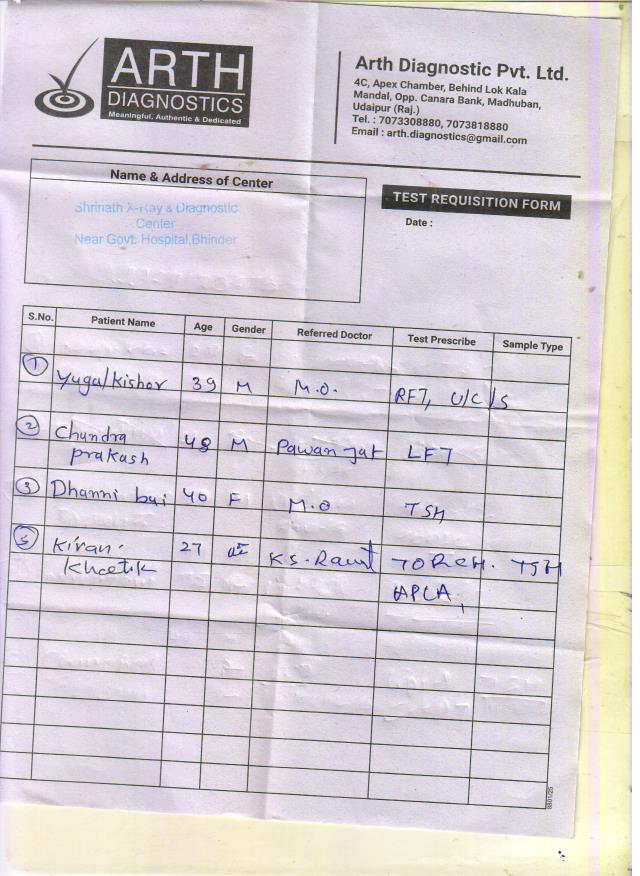 ARTH
DIAGNOSTICS
Meaningful, Authentic & Dedicated
Arth Diagnostic Pvt. Ltd.
4C, Apex Chamber, Behind Lok Kala
Mandal, Opp. Canara Bank, Madhuban,
Udaipur (Raj.)
Tel. : 7073308880, 7073818880
Email : arth.diagnostics@gmail.com
Name & Address of Center
Shrinath X-Ray & Diagnostic
Center
Near Govt. Hospital,Bhinder
TEST REQUISITION FORM
Date :
S.No. Patient Name Age Gender Referred Doctor Test Prescribe Sample Type
1 Yugal Kishor 39 M M.O. RFT, U/C/S
2 Chandra prakash 48 M Pawan Jat LFT
3 Dhanni bai 40 F M.O TSH
5 Kiran Khoetik 27 F K.S. Rawt TORCH. TSH
APLA,
8801/25